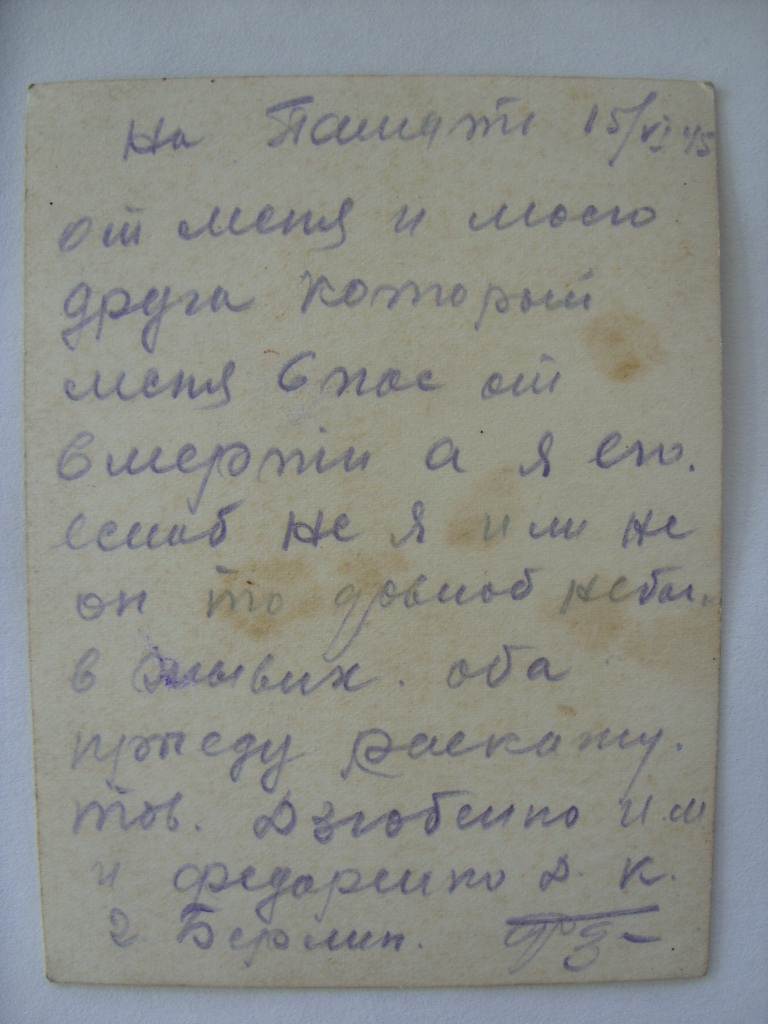 На Память 15/VI 45
от меня и моего
друга который
меня спас от
смерти а я его.
еслиб не я или не
он то довноб небы
в живих. оба
приеду раскажу.
тов. Дзюбенко И.М
и Федоренко Д. К.
г Берлин.